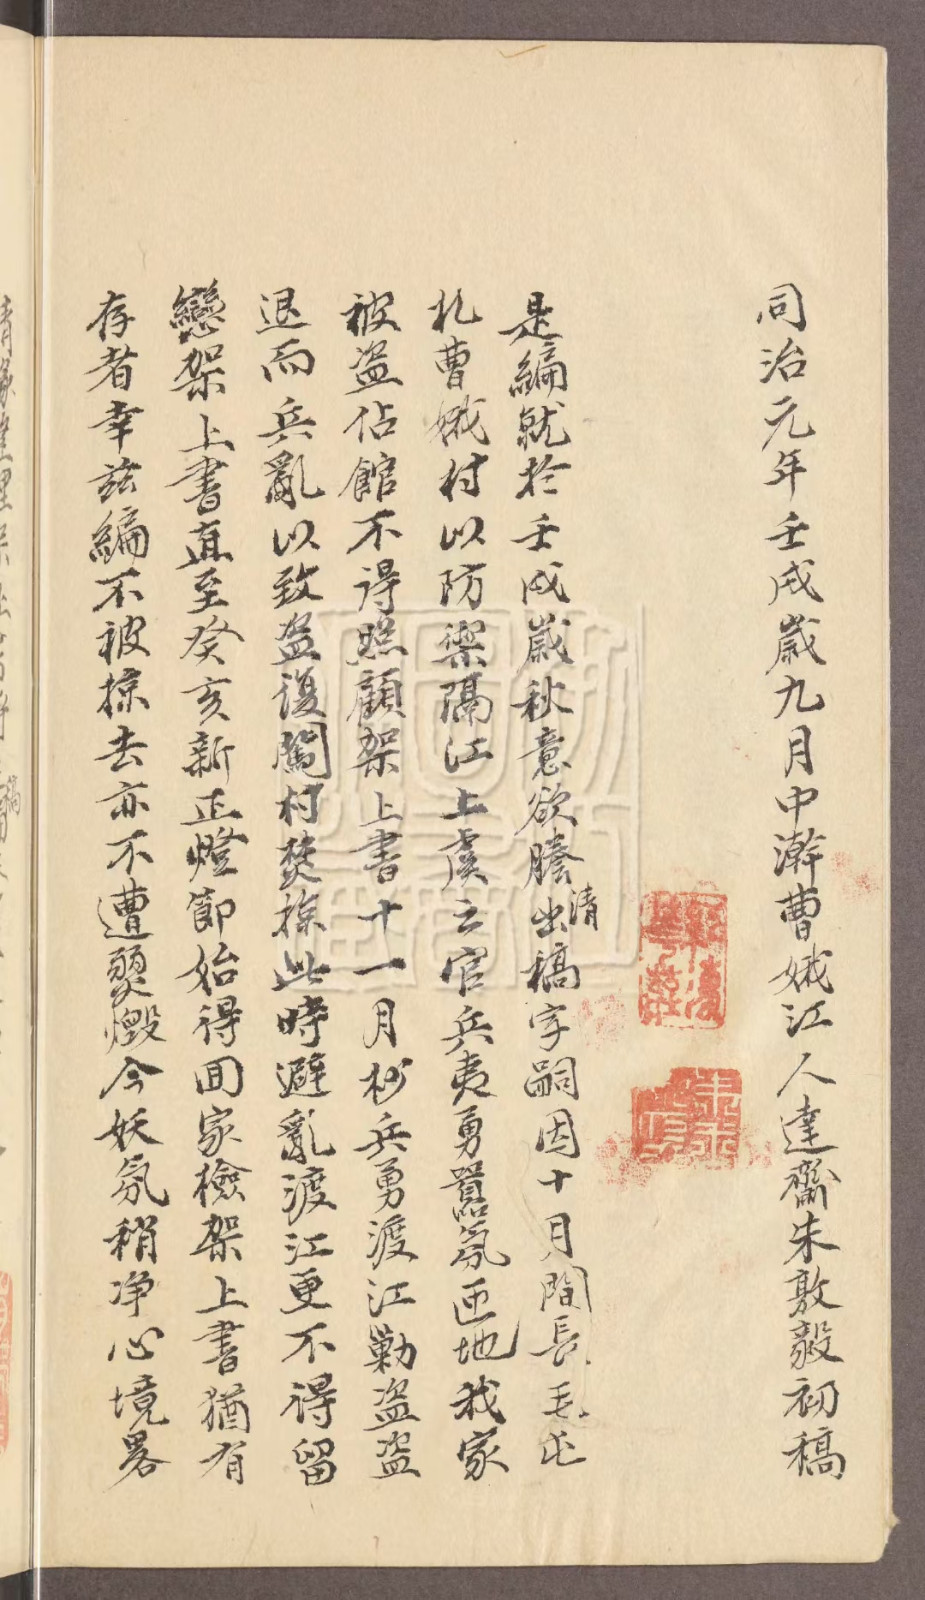 同治元年壬戌歲九月中澣曹娥江人達齋朱敦毅初稿
是編就於壬戌歲秋意欲謄出清稿字嗣因十月間長毛屯
札曹娥村以防禦隔江上虞之官兵夷勇囂氛匝地我家
被盜佔館不得照顧架上書十一月杪兵勇渡江勦盜盜
退而兵亂以致盜復闖村焚掠此時避亂渡江更不得留
戀架上書直至癸亥新正燈節始得回家檢架上書猶有
存者幸茲編不被掠去亦不遭燹燬今妖氛稍净心境畧